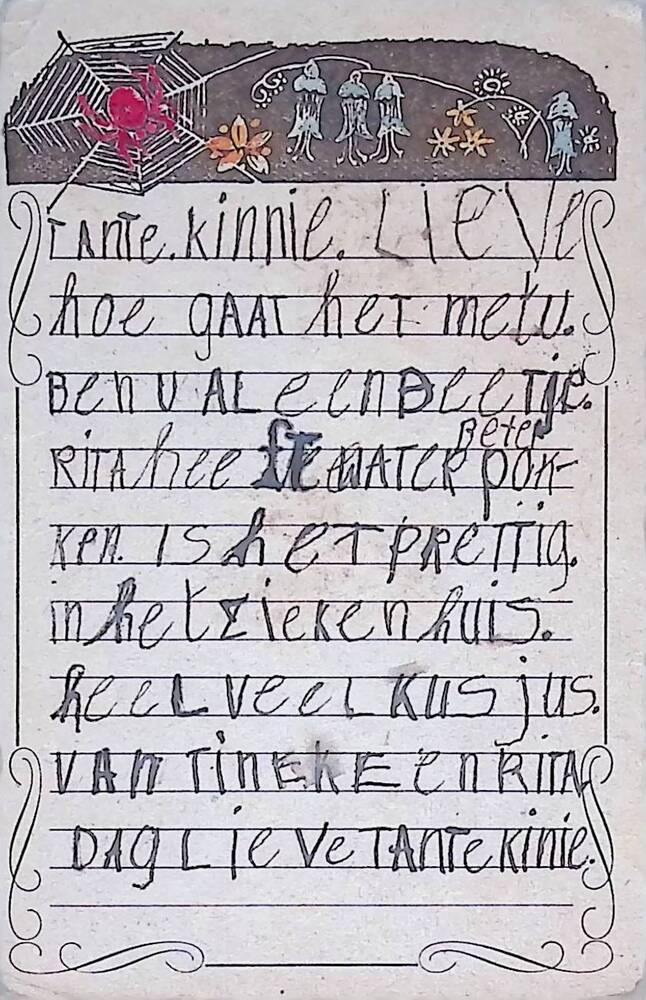 TAnTe. kinnie. LIEVe
hoe gAAT heT metu.
Ben U AL eenBeeTje.
Beter
RiTA heeft WATERpok-
ken. IS heT pReTTig.
in het ziekenhuis.
heeL VeeL KUSjus.
VAn TinEKE en RiTA
DAg LieVe TAnTe kinie.